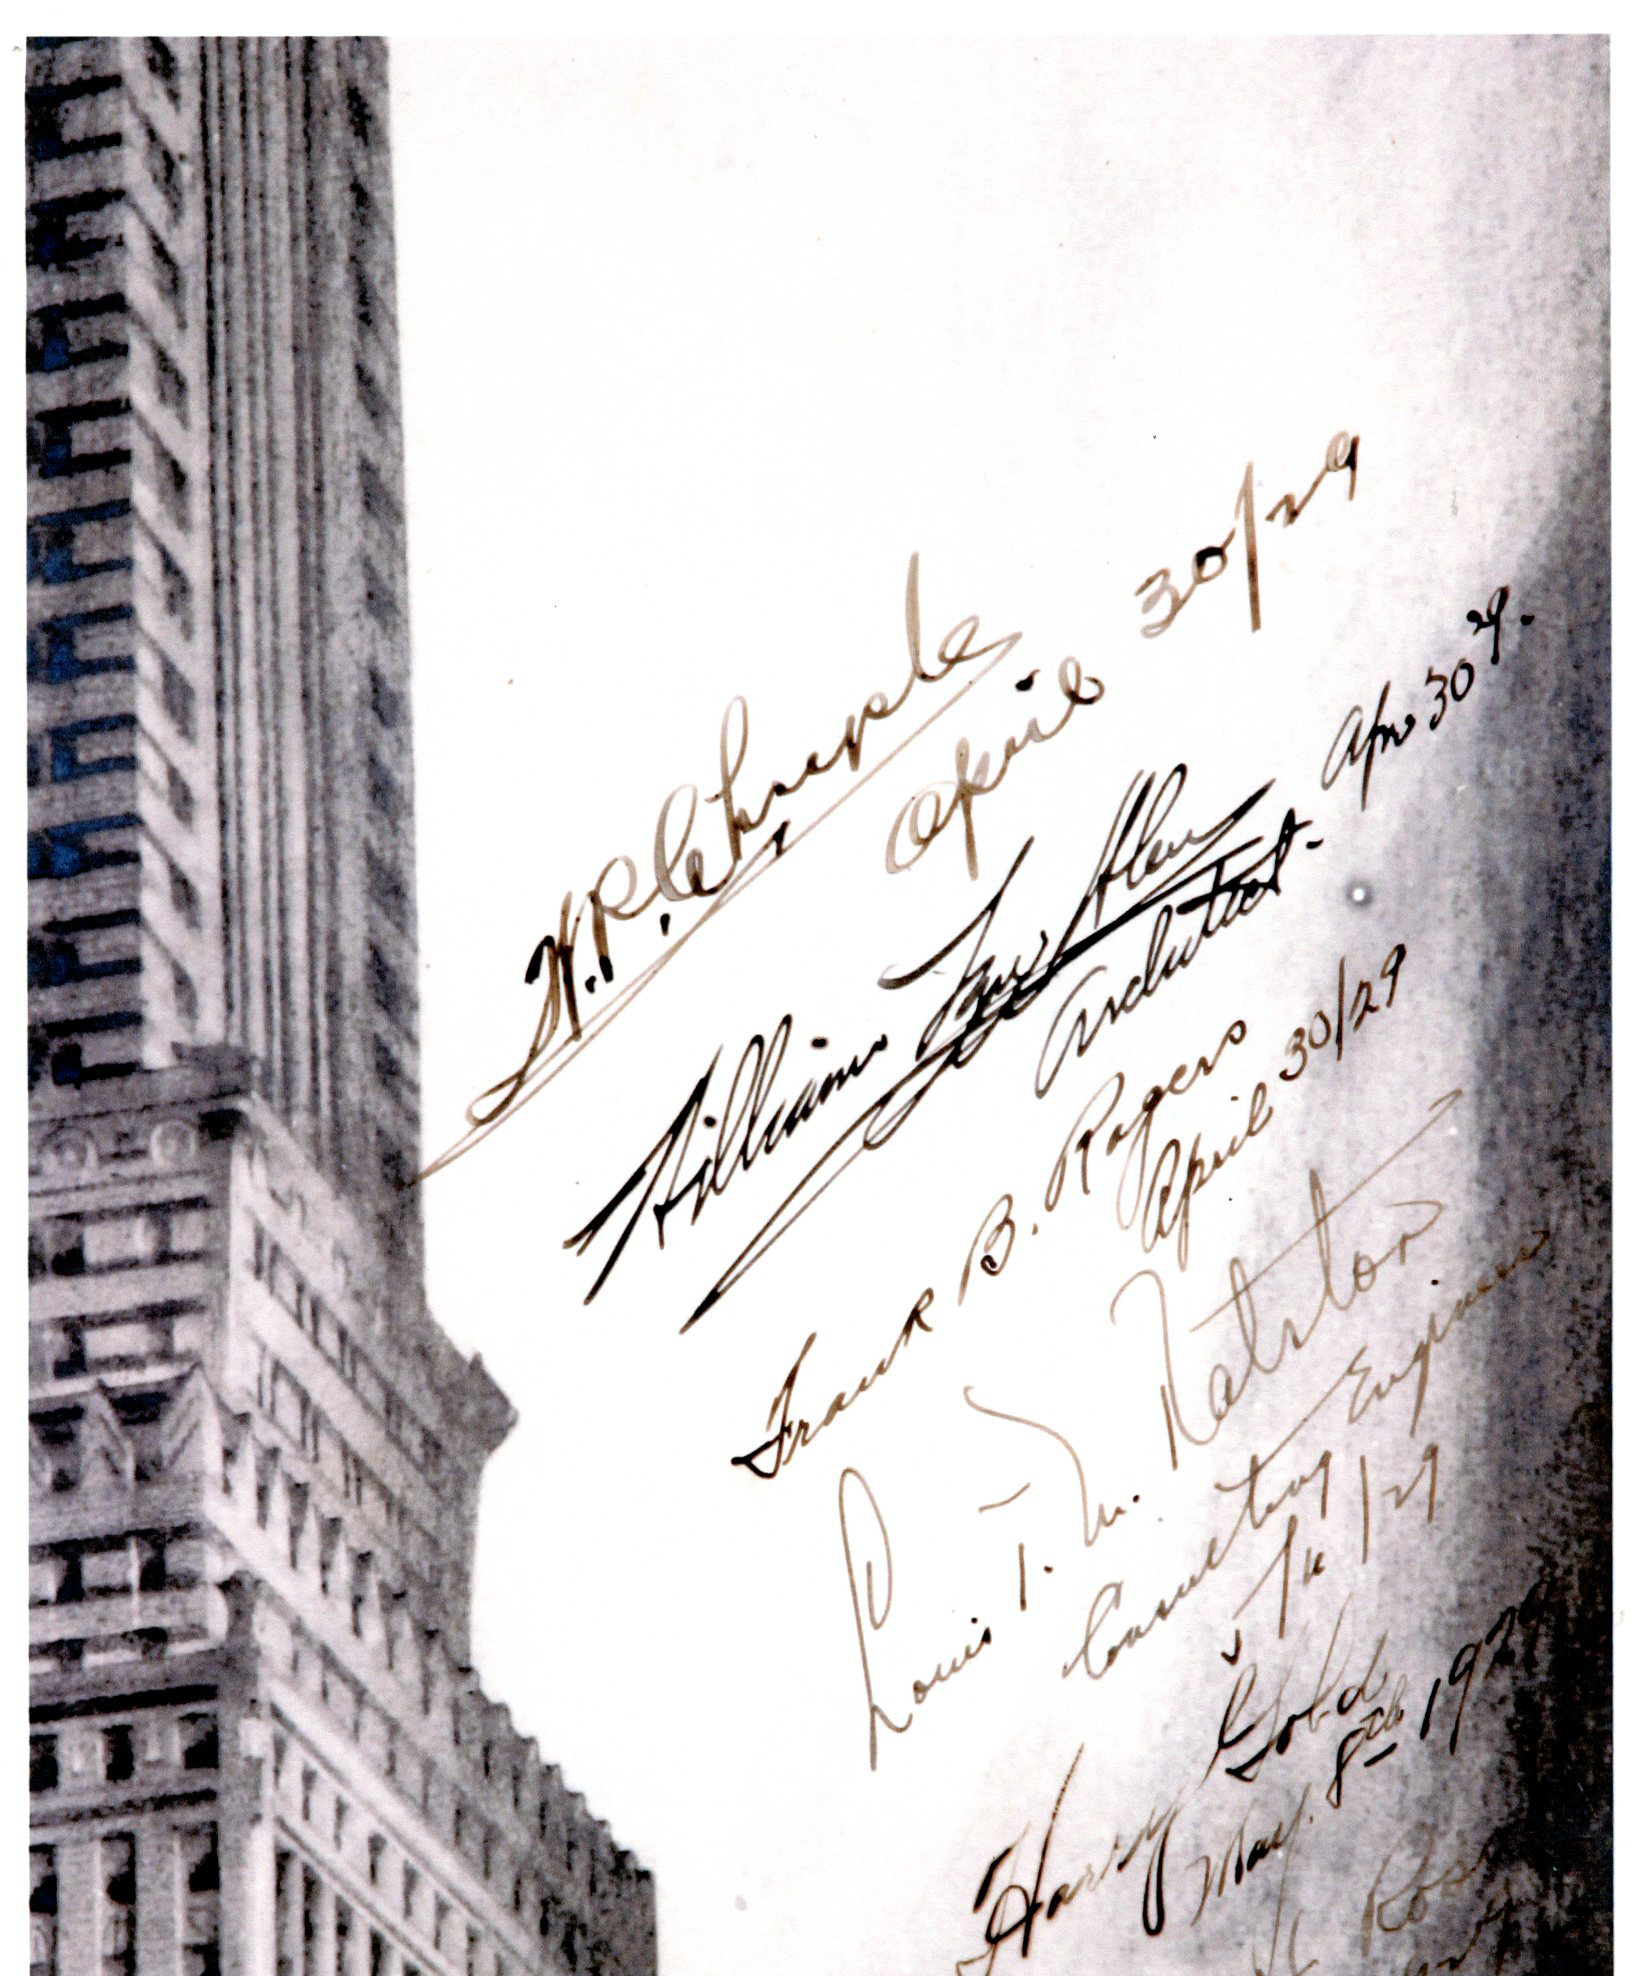 W.P. Chrysler
April 30/29
William Van Alen
Architect. Apr 30 29.
Frank B. Rogers
April 30/29
Louis T. M. Ralston
Consulting Engineer
/29
Harvey Gold
May. 8th 1929